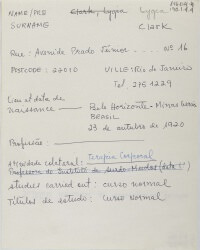 NAME/PRE Clark, Lygia Lygia
SURNAME CLARK
Rue: Avenida Prado Júnior .... Nº 16
POSTCODE: 22010 VILLE: Rio de Janeiro
Tel. 275 1229
Lieu et data de
Naissance — Belo Horizonte - Minas Gerais
BRASIL
23 de outubro de 1920
Profissão:
Atividade colateral: Terapia Corporal
Professora do Instituto de
studies carried out: curso normal
Títulos de estudo: Curso normal